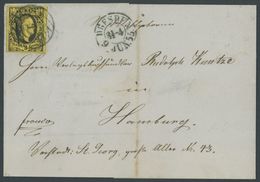 DRESDEN
Herrn Verlagsbuchhändler Rudolph Kuntze
in
franco
Hamburg
Vorstadt: St. Georg, große Allee No. 43.